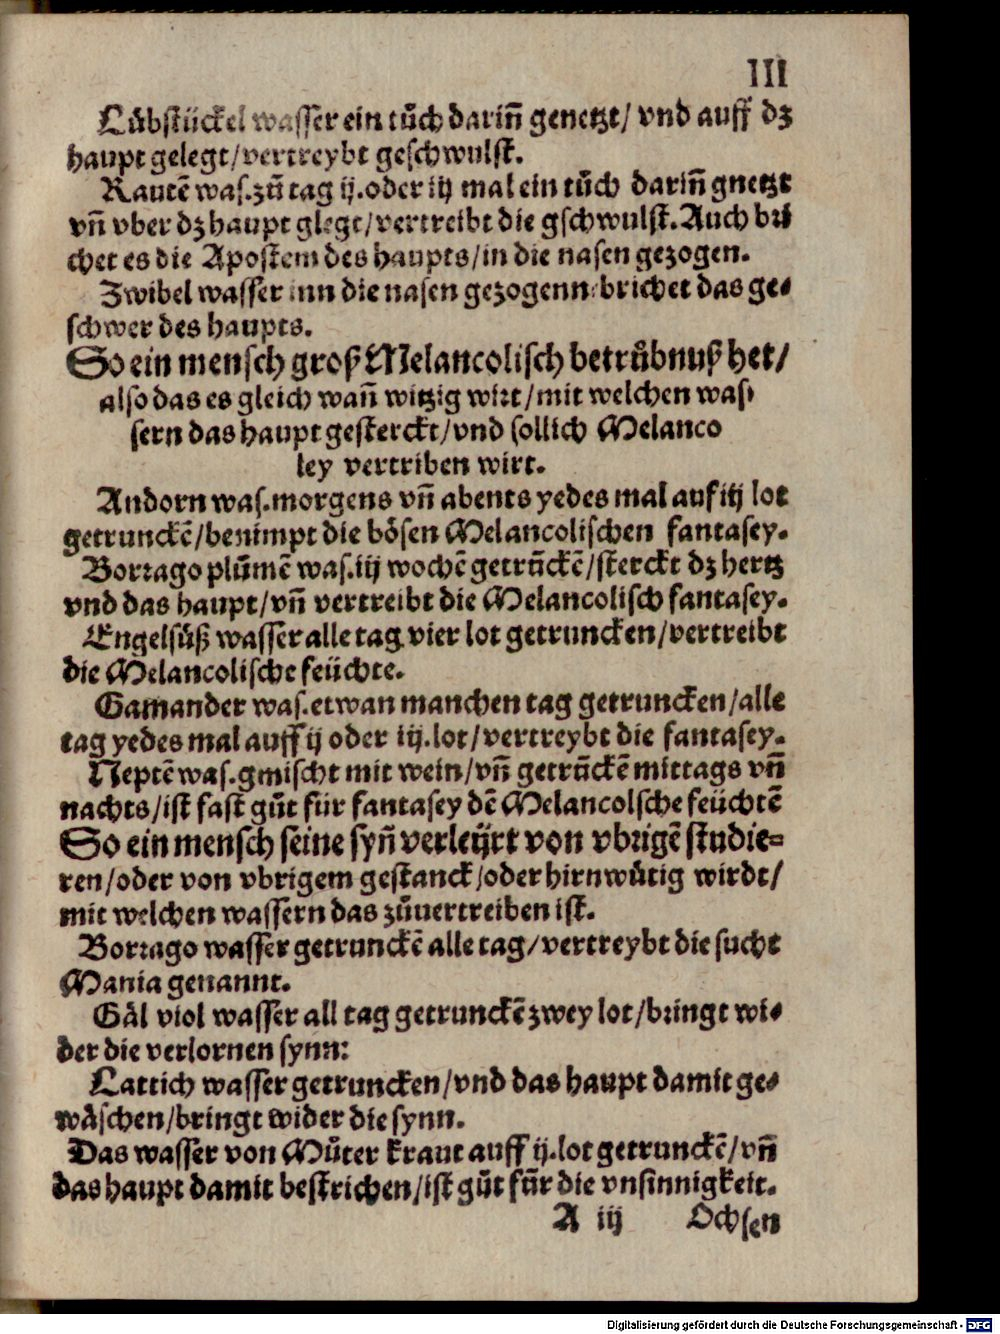 III
Lübstückel wasser ein tůch dariñ genetzt/ vnd auff dz
haupt gelegt/vertreybt geschwulst.
Rautē was.zů tag ij.oder iij mal ein tůch dariñ gnetzt
vñ vber dz haupt glegt/vertreibt die gschwulst. Auch bri
chet es die Apostem des haupts/in die nasen gezogen.
Zwibel wasser inn die nasen gezogenn/brichet das ge⸗
schwer des haupts.
So ein mensch groß Melancolisch betrůbnuß het/
also das es gleich wañ witzig wirt/mit welchen was⸗
sern das haupt gesterckt/vnd sollich Melanco
ley vertriben wirt.
Andorn was.morgens vñ abents yedes mal auf iij lot
getrunckē/benimpt die bösen Melancolischen fantasey.
Borrago plůmē was.iij wochē getrūckē/sterckt dz hertz
vnd das haupt/vñ vertreibt die Melancolisch fantasey.
Engelsüß wasser alle tag vier lot getruncken/vertreibt
die Melancolische feüchte.
Gamander was.etwan manchen tag getruncken/alle
tag yedes mal auff ij oder iij.lot/vertreybt die fantasey.
Neptē was.gmischt mit wein/vñ getrūckē mittags vñ
nachts/ist fast gůt für fantasey dē Melancolsche feüchtē
So ein mensch seine syñ verleürt von vbrigē studie⸗
ren/oder von vbrigem gestanck/oder hirnwůtig wirdt/
mit welchen wassern das zůuertreiben ist.
Borrago wasser getrunckē alle tag/vertreybt die sucht
Mania genannt.
Gäl viol wasser all tag getrunckē zwey lot/bringt wi⸗
der die verlornen synn:
Lattich wasser getruncken/vnd das haupt damit ge⸗
wäschen/bringt wider die synn.
Das wasser von Můter kraut auff ij.lot getrunckē/vñ
das haupt damit bestrichen/ist gůt für die vnsinnigkeit.
A iij Ochsen
Digitalisierung gefördert durch die Deutsche Forschungsgemeinschaft - DFG